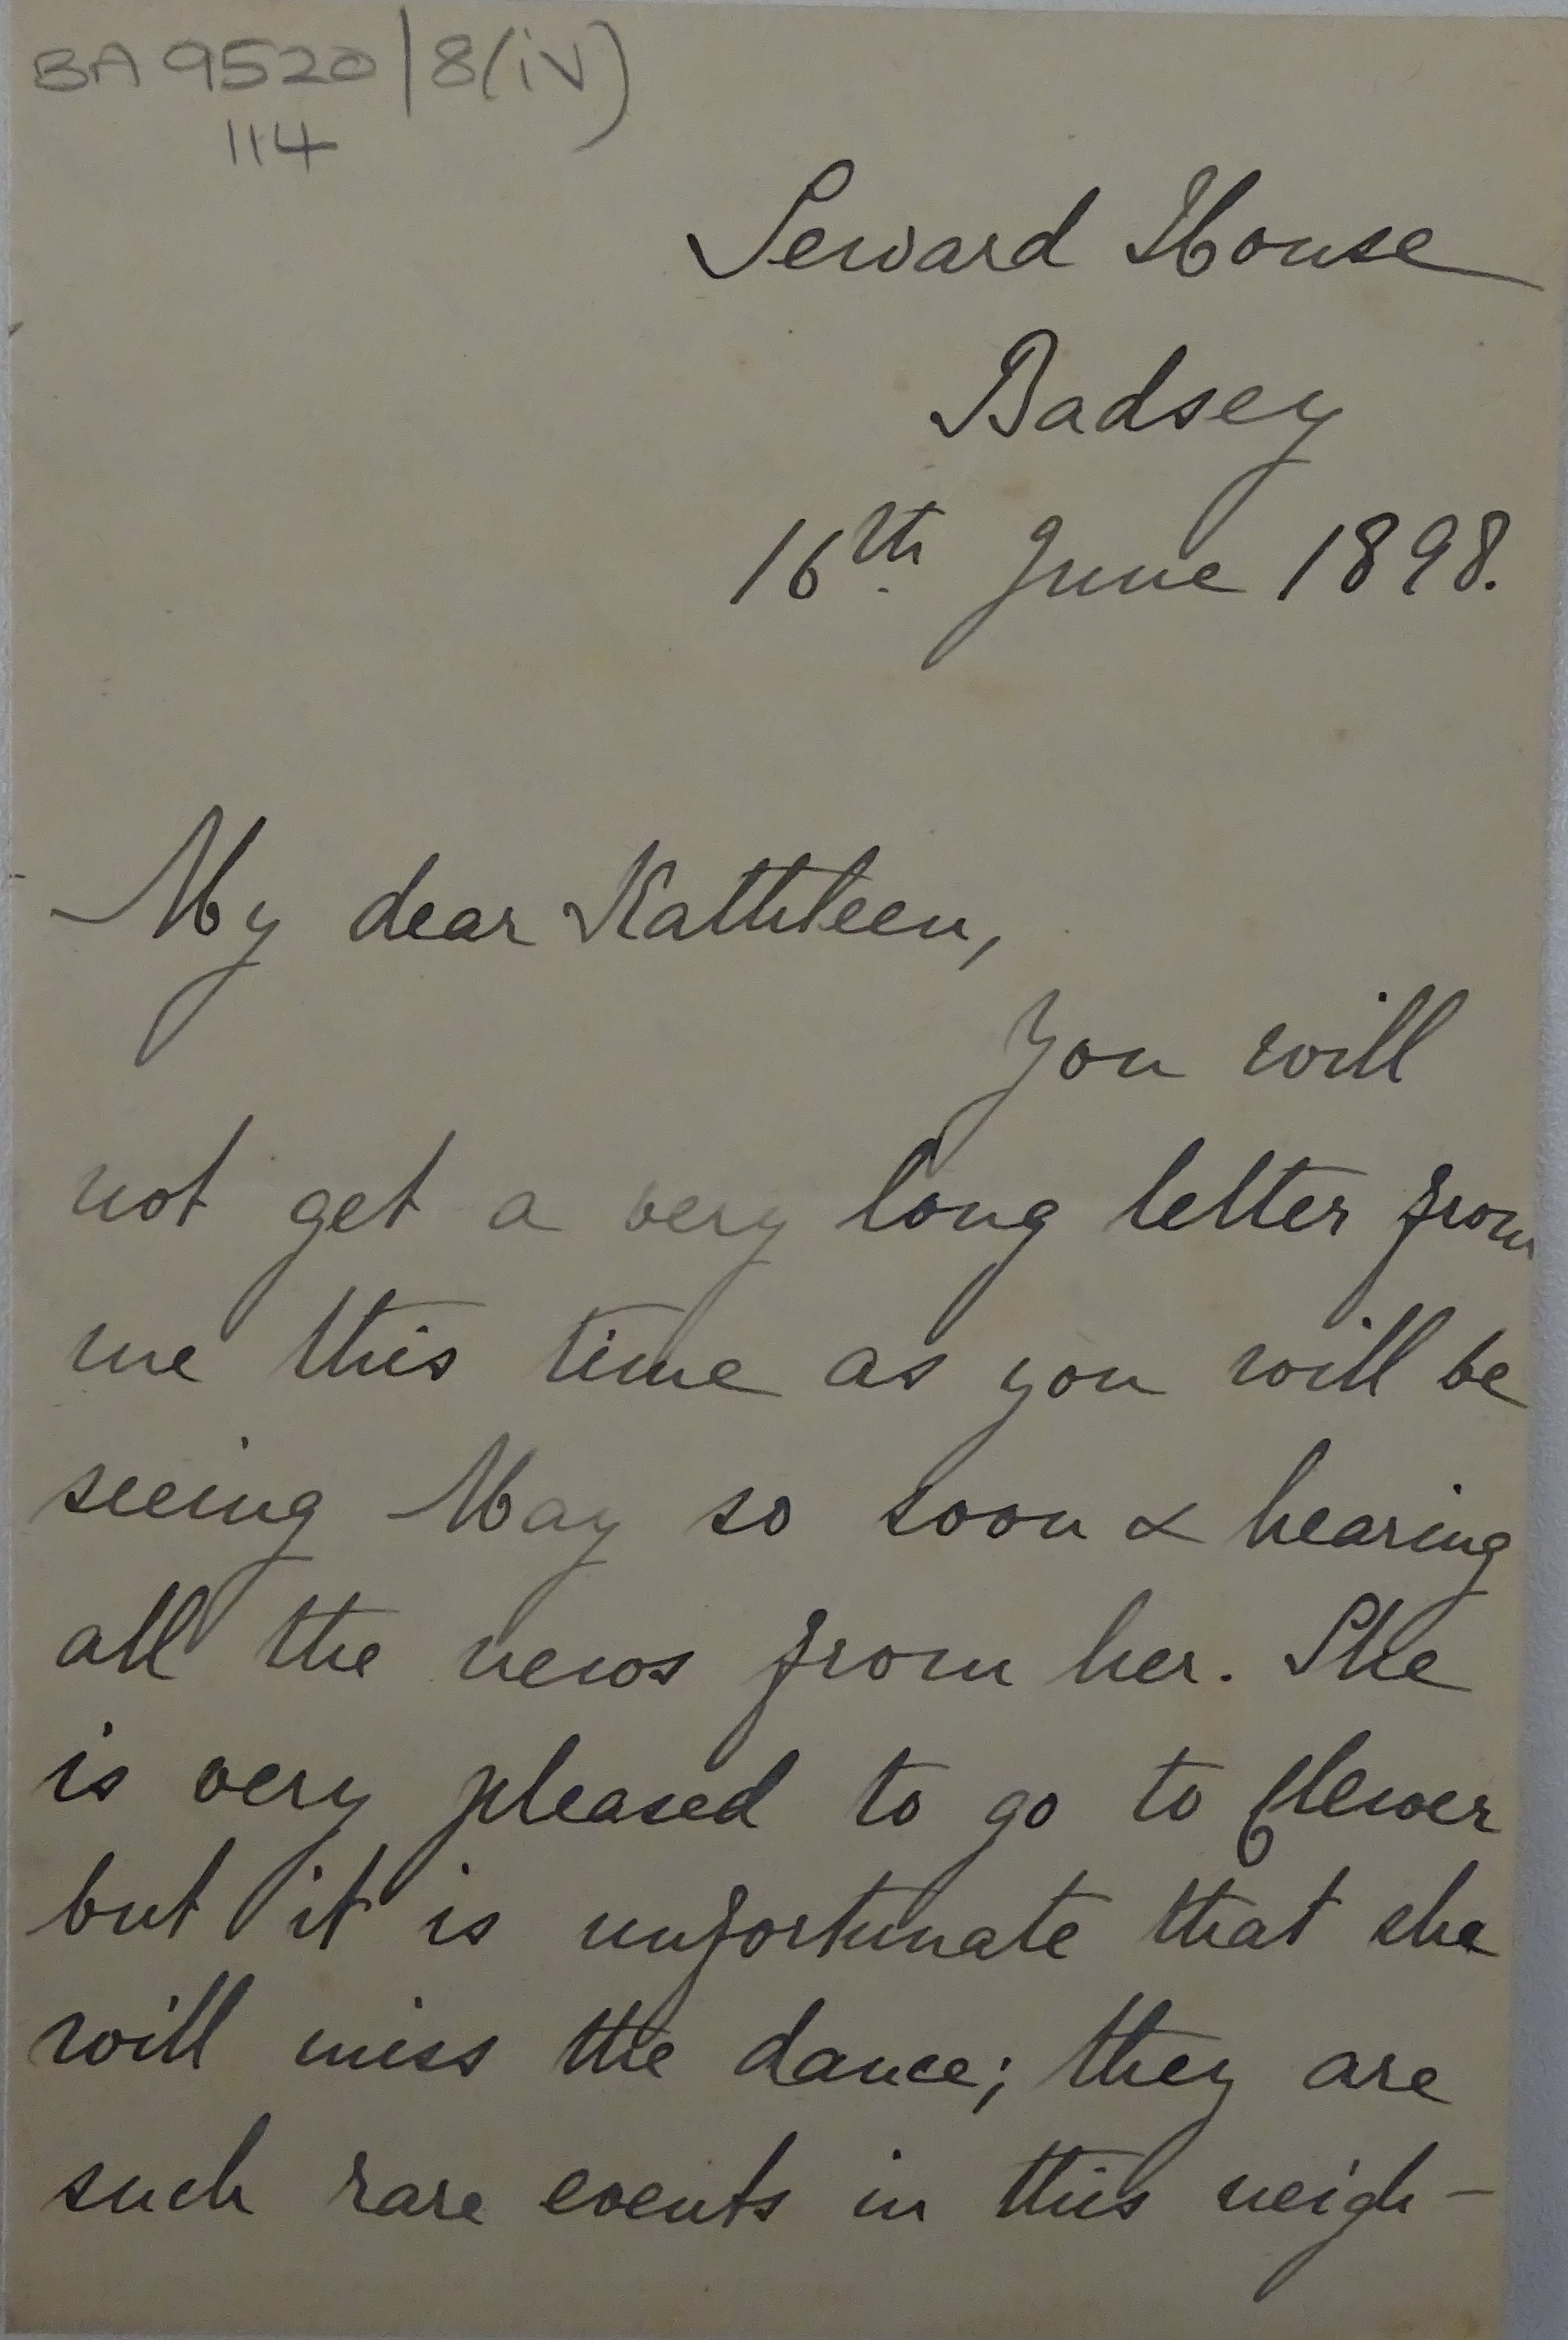 BA 9520/8(iv)
114
Seward House
Badsey
16th June 1898.
My dear Kathleen,
You will
not get a very long letter from
me this time as you will be
seeing May so soon & hearing
all the news from her. She
is very pleased to go to Clewer
but it is unfortunate that she
will miss the dance; they are
such rare events in this neigh-